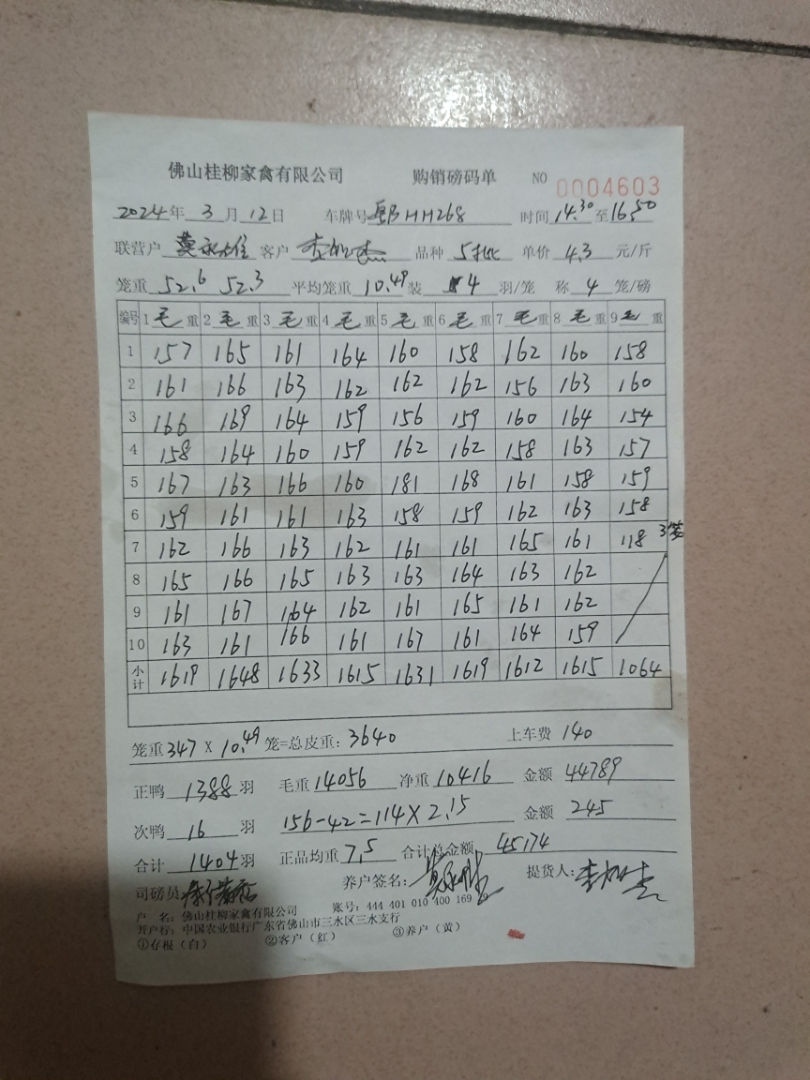 佛山桂柳家禽有限公司 购销磅码单 NO 0004603
2024年 3 月 12 日 车牌号 HH268 时间 14.30 至 16.50
联营户 莫永 客户 品种 5批 单价 4.3 元/斤
笼重 52.6 52.3 平均笼重 10.49 装 4 羽/笼 称 4 笼/磅
编号 1 毛 重 2 毛 重 3 毛 重 4 毛 重 5 毛 重 6 毛 重 7 毛 重 8 毛 重 9 毛 重
1 157 165 161 164 160 158 162 160 158
2 161 166 163 162 162 162 156 163 160
3 166 169 164 159 156 159 160 164 154
4 158 164 160 159 162 162 158 163 157
5 167 163 166 160 181 168 161 158 159
6 159 161 161 163 158 159 162 163 158
7 162 166 163 162 161 161 165 161 118 3笼
8 165 166 165 163 163 164 163 162
9 161 167 164 162 161 165 161 162
10 163 161 166 161 167 161 164 159
小计 1619 1648 1633 1615 1631 1619 1612 1615 1064
笼重 347 X 10.49 笼=总皮重: 3640 上车费 140
正鸭 1388 羽 毛重 14056 净重 10416 金额 44789
次鸭 16 羽 156-42=114X2.15 金额 245
合计 1404 羽 正品均重 7.5 合计总金额 45174
司磅员 养户签名: 提货人:
户 名: 佛山桂柳家禽有限公司 账号: 444 401 010 400 169
开户行: 中国农业银行广东省佛山市三水区三水支行
①存根（白） ②客户（红） ③养户（黄）